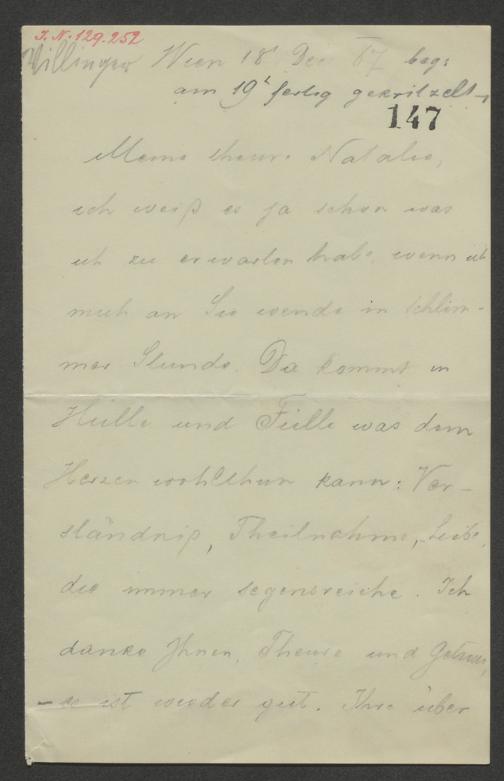 I. N. 129.252
Villinger Wien 18t Dez 87 beg:
am 19t fertig gekritzelt
147
Meine theure Natalie,
ich weiß es ja schon was
ich zu erwarten habe, wenn ich
mich an Sie wende in schlim-
mer Stunde. Da kommt in
Hülle und Fülle was dem
Herzen wohlthun kann: Ver-
ständniß, Theilnahme, Liebe,
die immer segensreiche. Ich
danke Ihnen, Theure und Getreue,
– es ist wieder gut. Ihre über